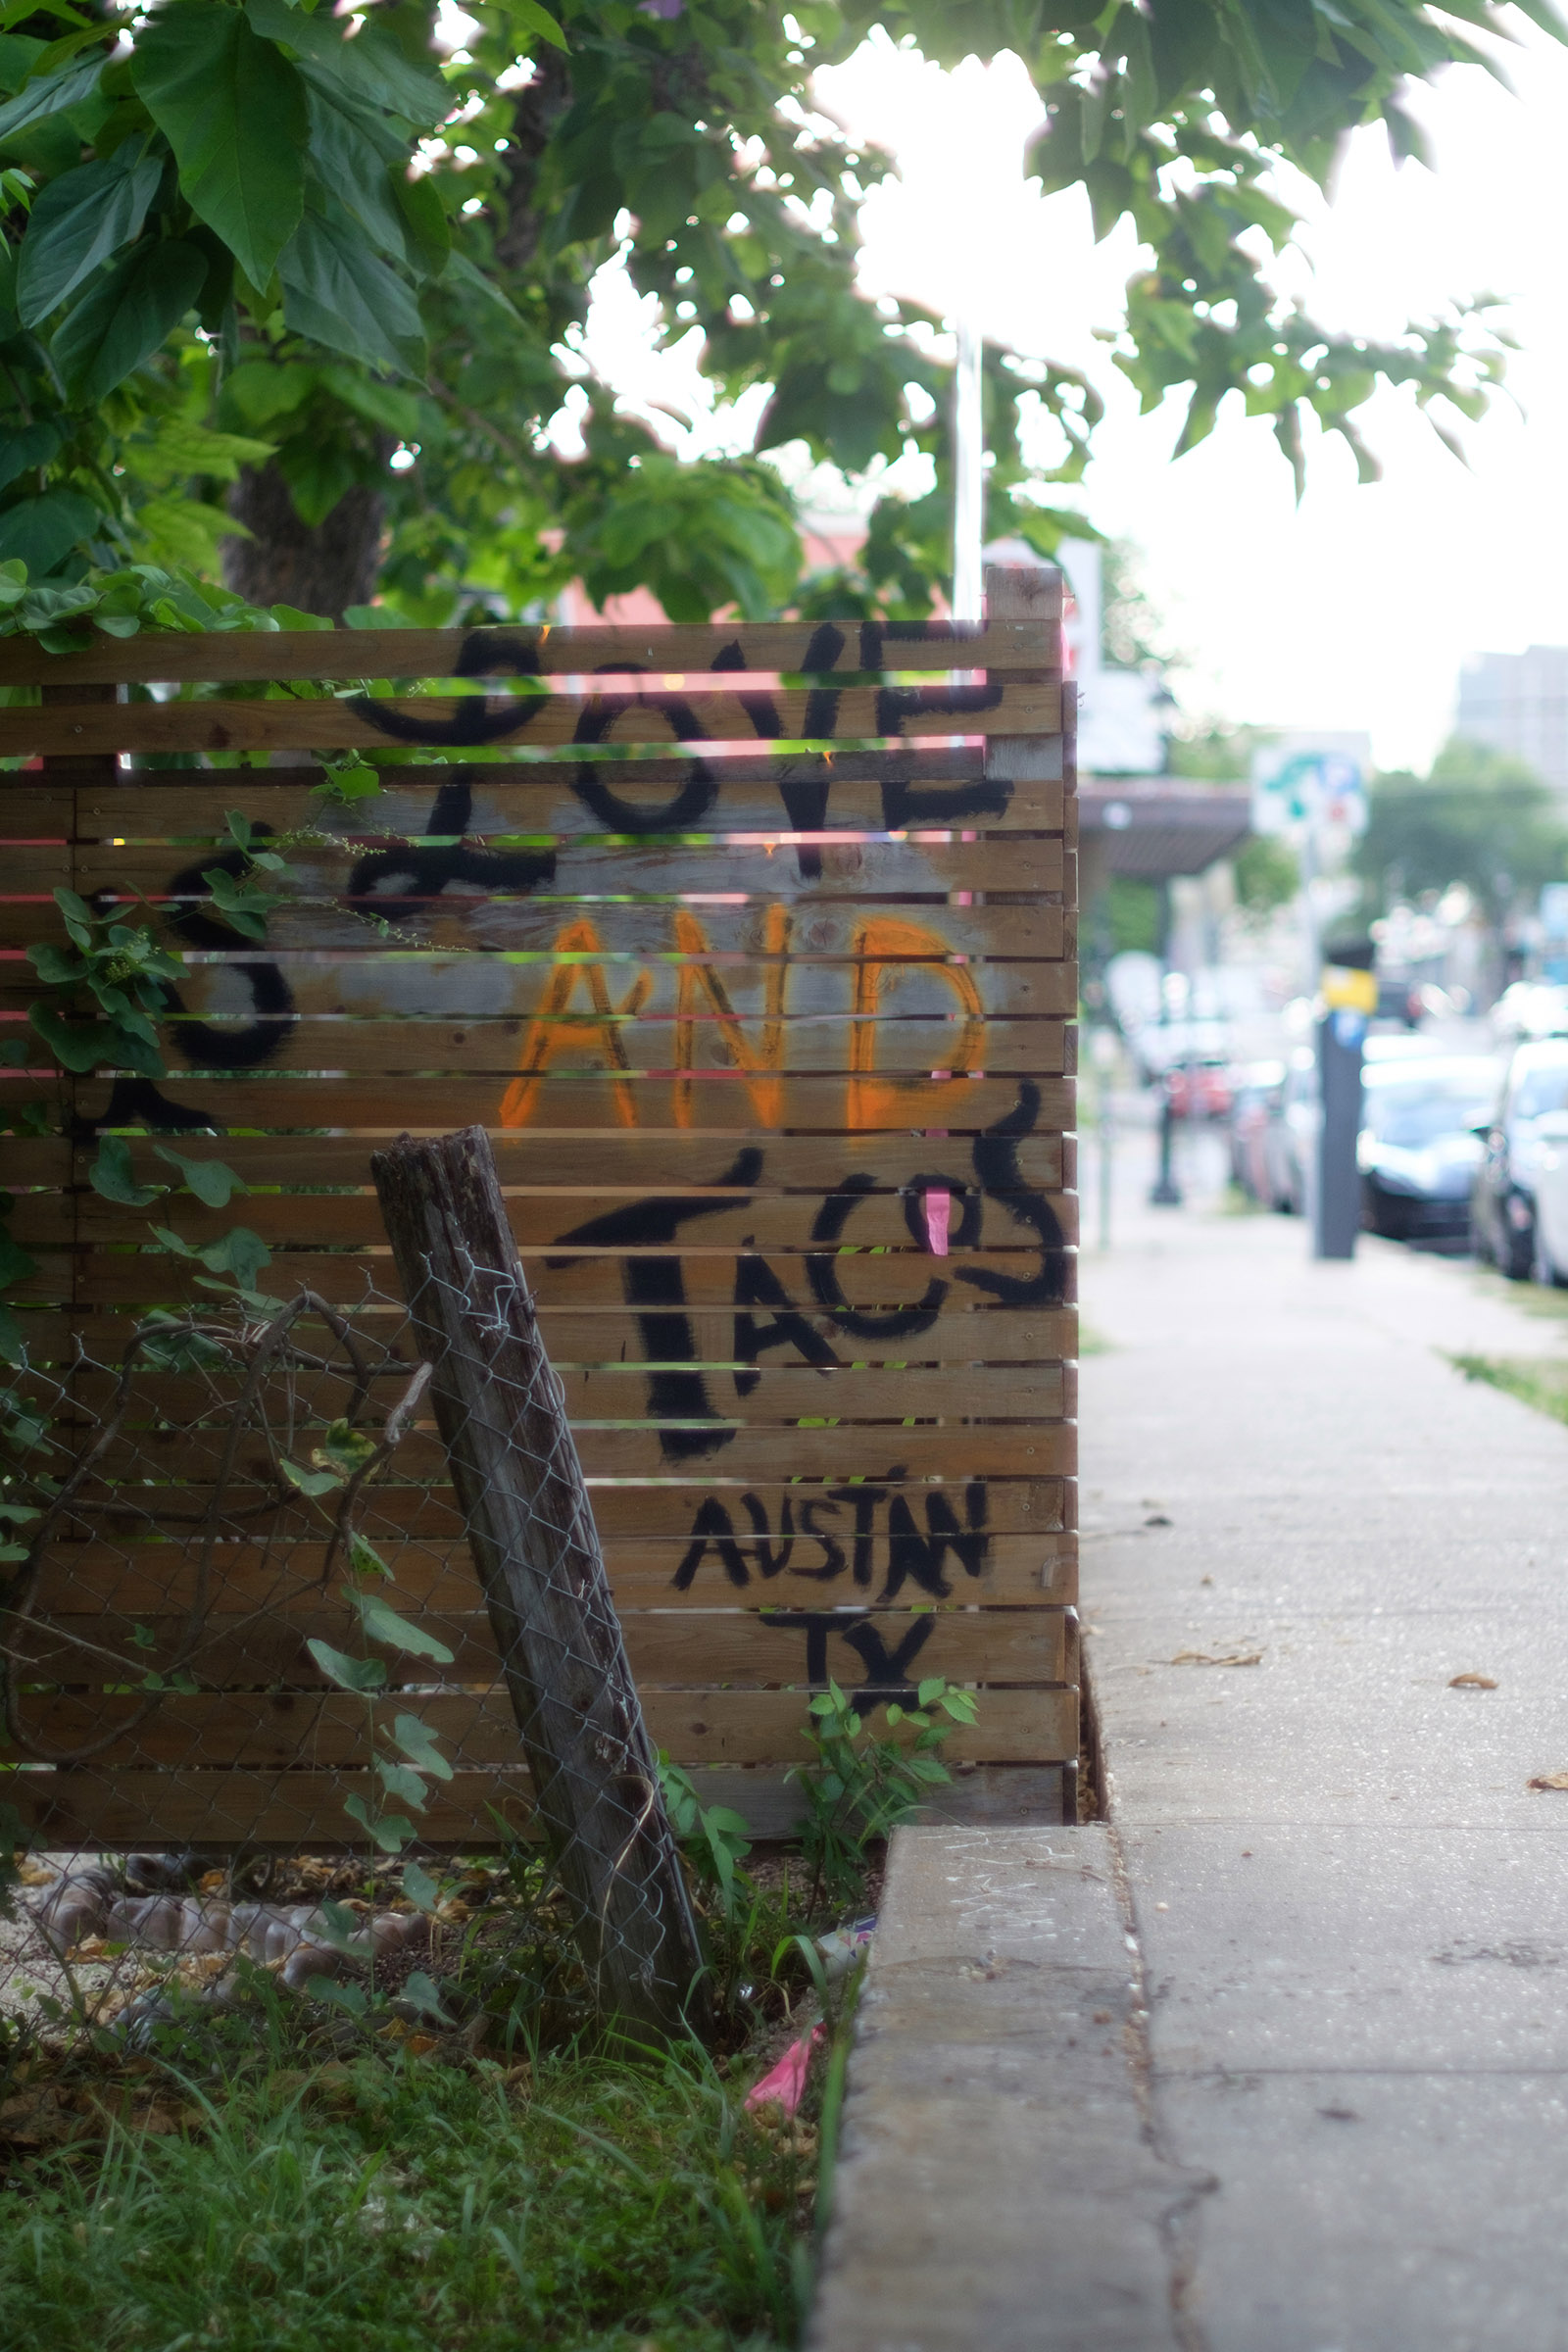 LOVE
AND
TACOS
AUSTIN
TX